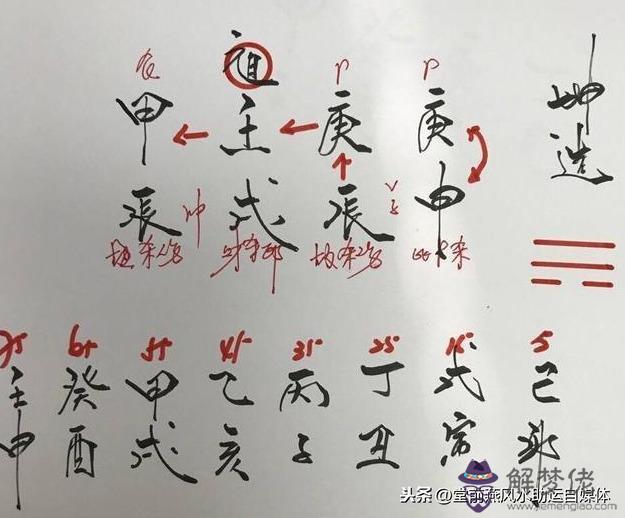 坤造
甲 壬 庚 庚
辰 冲 戌 辰 申
75 65 55 45 35 25 15 5
壬 癸 甲 乙 丙 丁 戊 己
申 酉 戌 亥 子 丑 寅 卯
解梦佬
www.jiemenglao.com
头条号@堂前燕风水助运自媒体